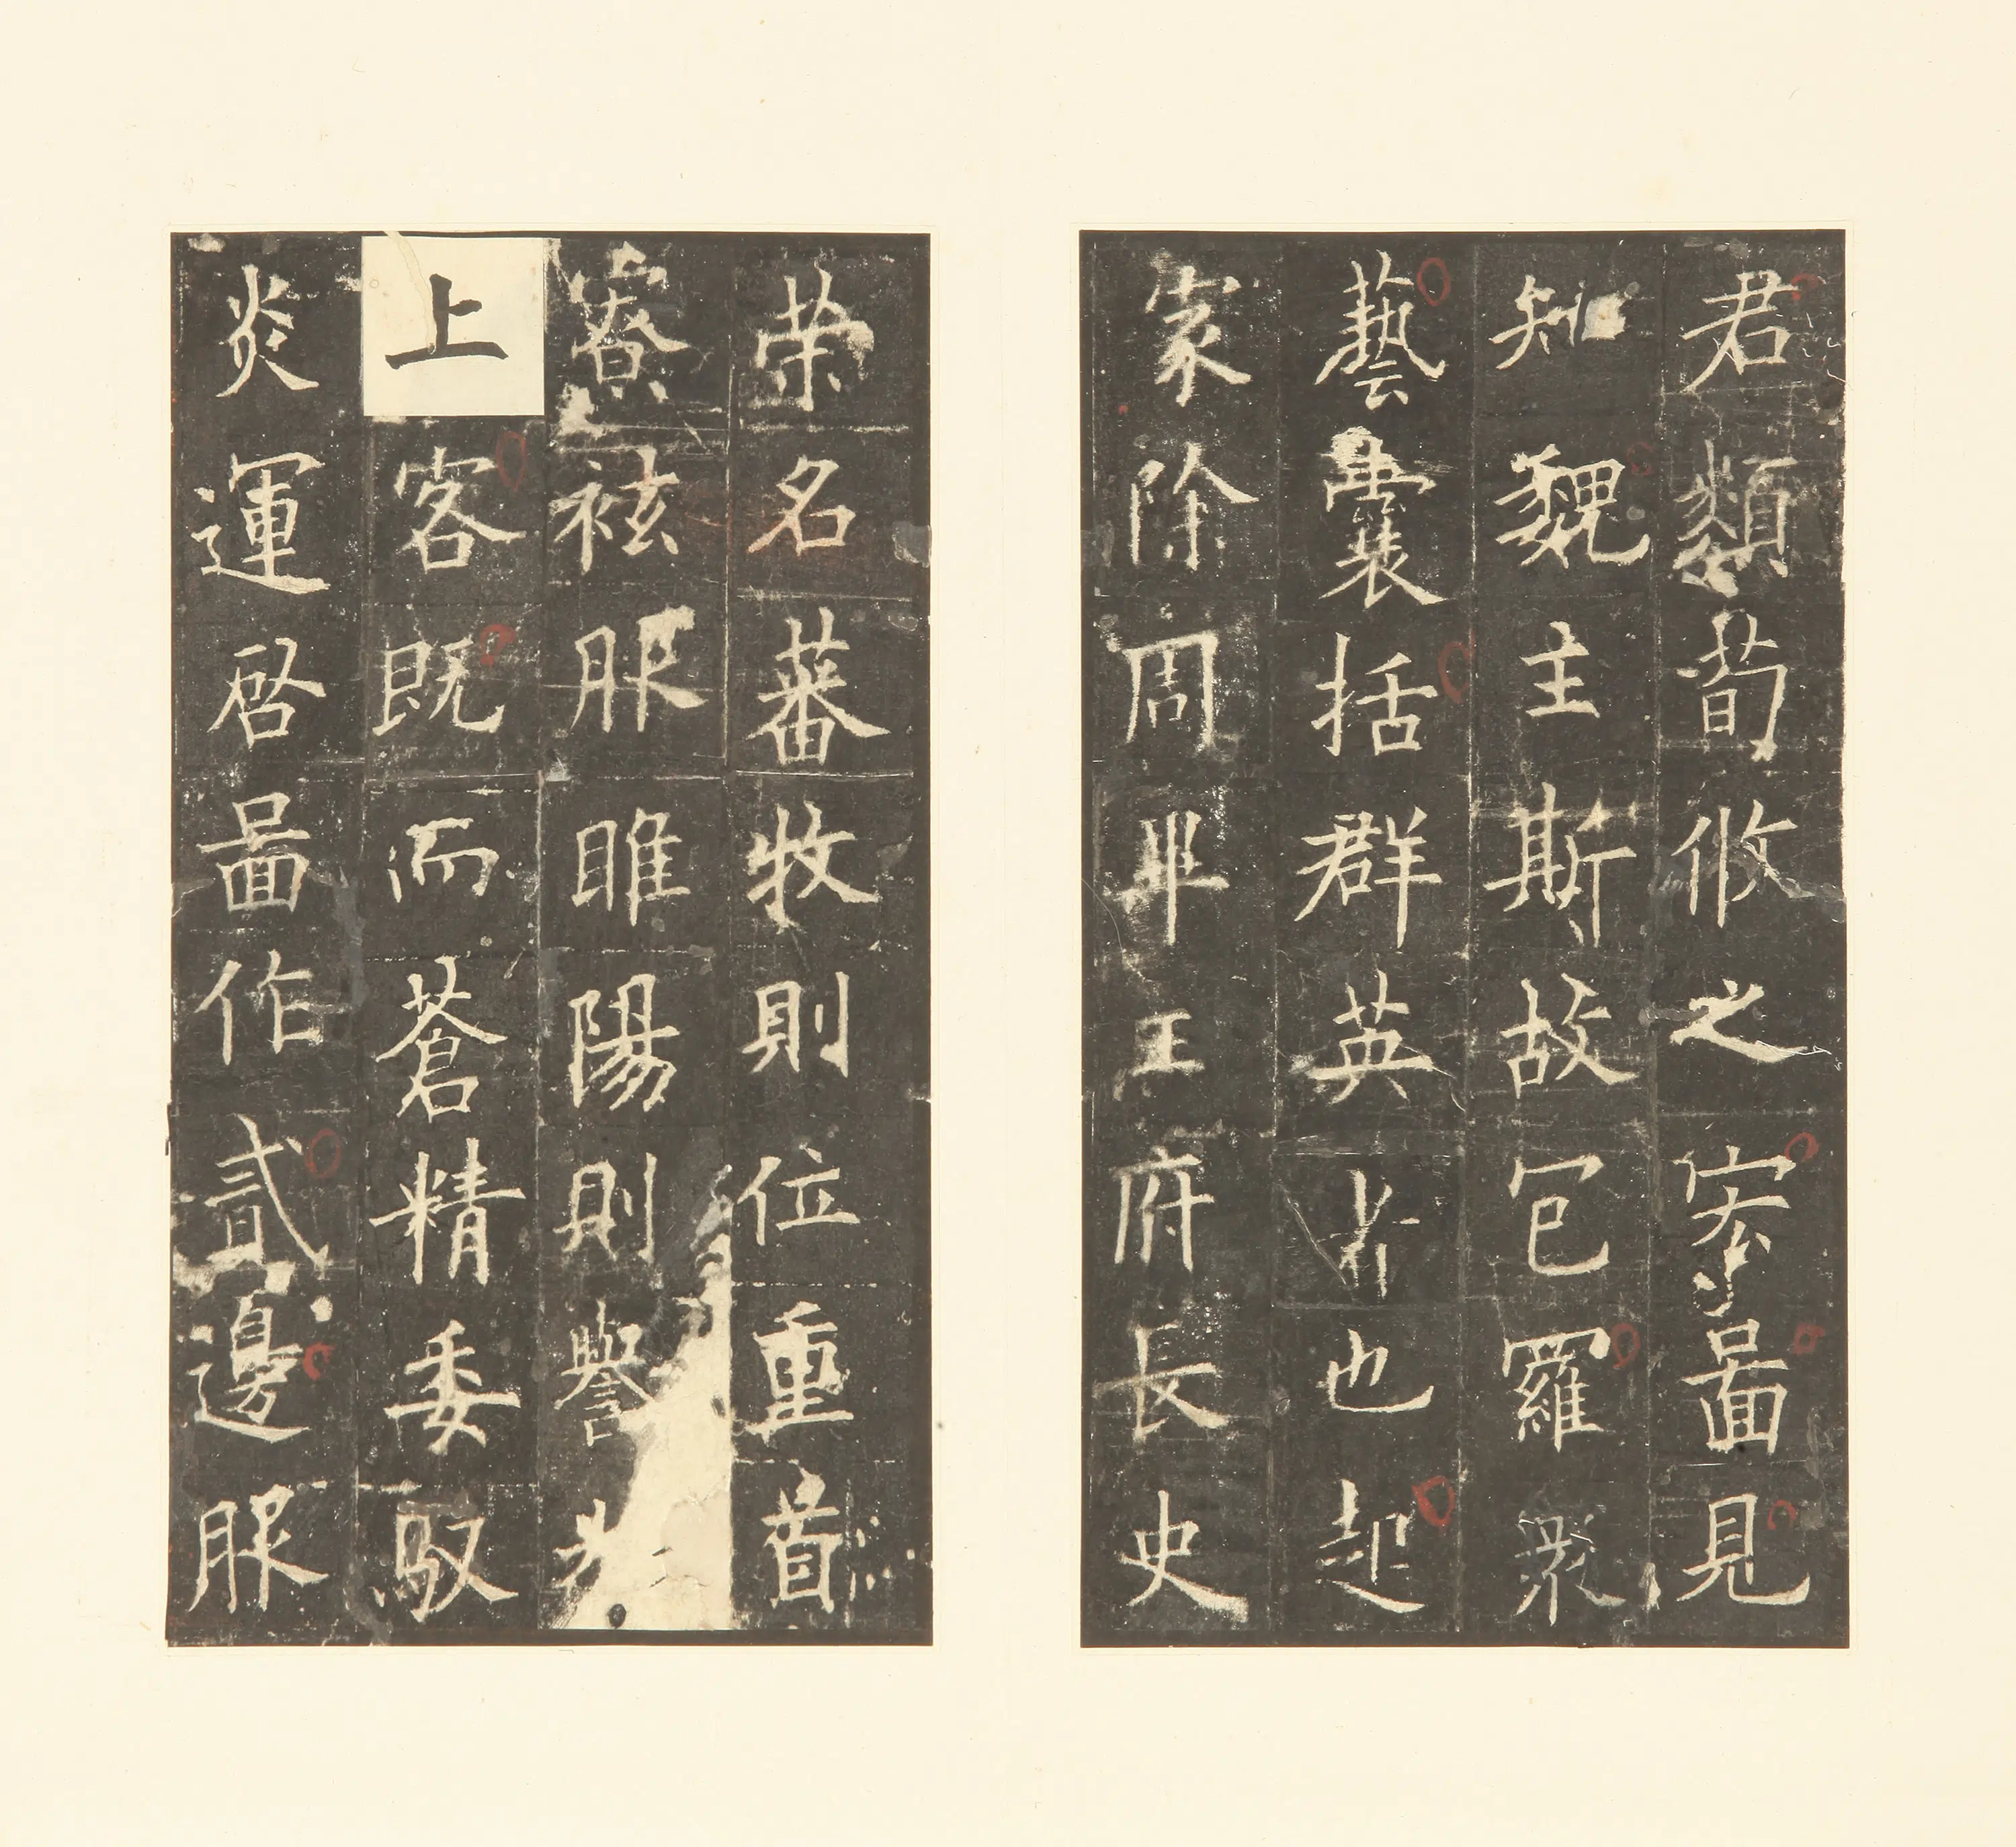 君類荀攸之宏圖見
知魏主斯故包羅衆
藝囊括群英者也起
家除周畢王府長史
榮名蕃牧則位重首
寮袨服睢陽則譽
上客既而蒼精委馭
炎運啓圖作貳邊服